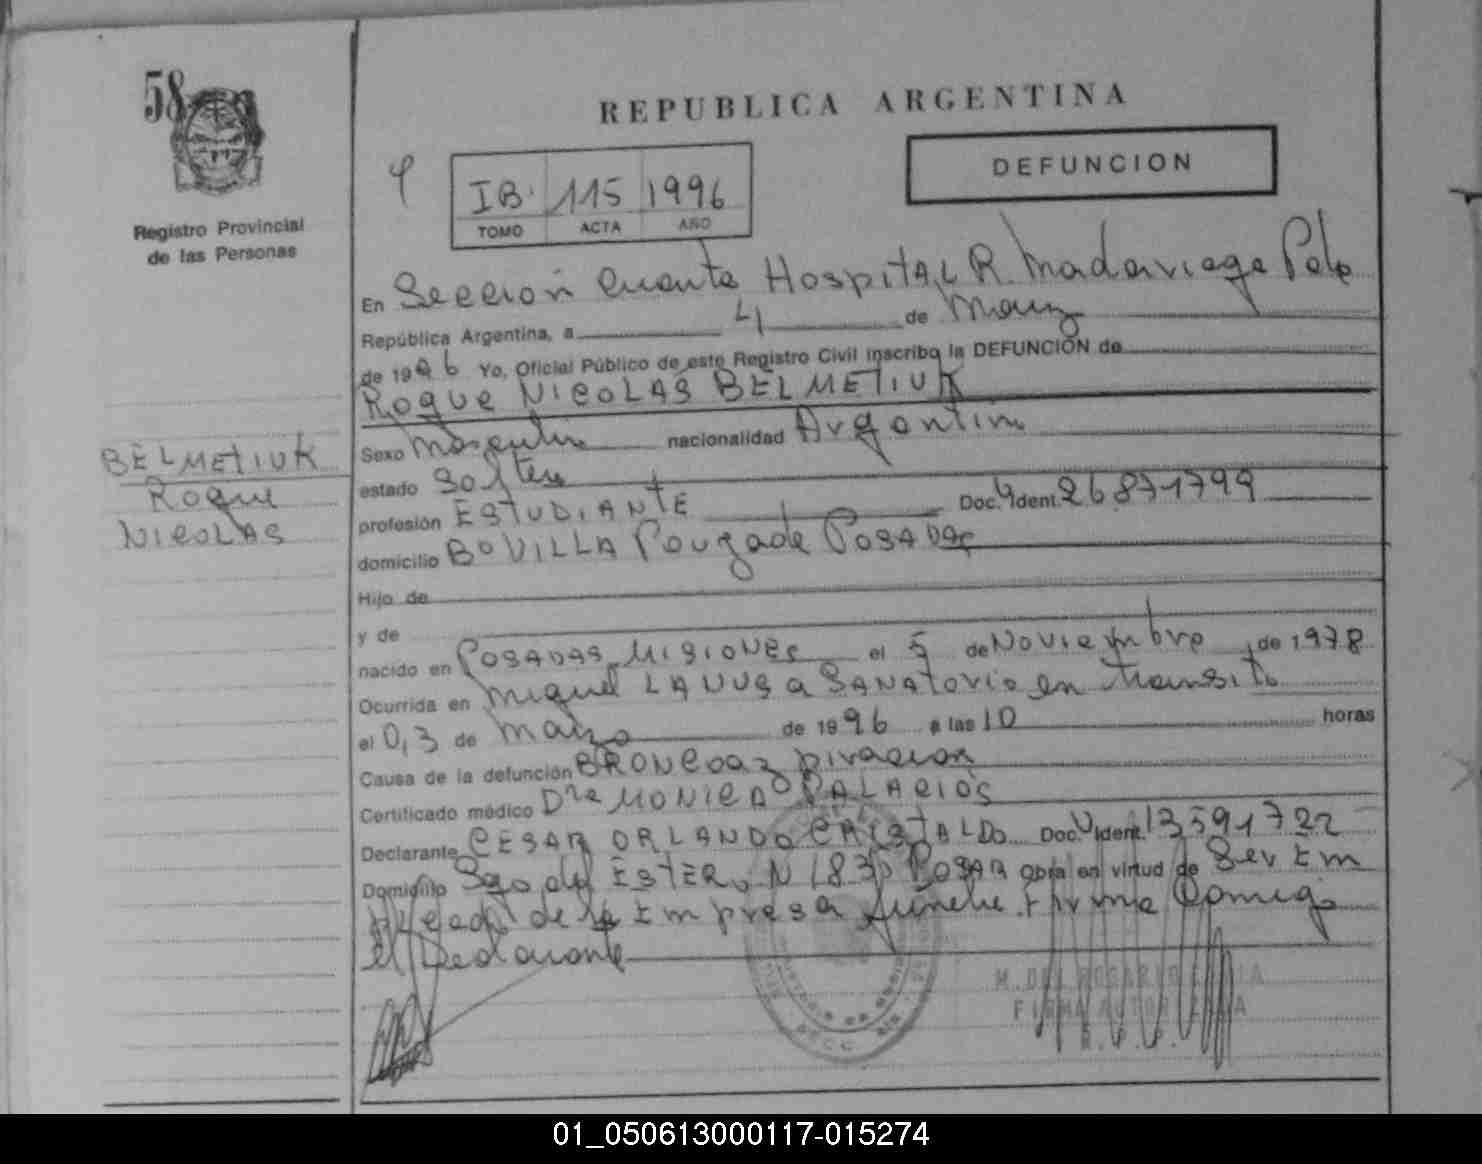 58
REPUBLICA ARGENTINA
DEFUNCION
IB. 115 1996
TOMO ACTA AÑO
Registro Provincial
de las Personas
En Sección Cuarta Hospital R. Madariaga
República Argentina, a 4 de Marzo
de 1996 Yo, Oficial Público de este Registro Civil inscribo la DEFUNCION de
Roque NICOLAS BELMETIUK
Sexo Masculino nacionalidad Argentino
BELMETIUK
Roque
NICOLAS
estado Soltero
profesión ESTUDIANTE Doc. Ident. 26.871799
domicilio Bº VILLA POSADAS
Hijo de
y de
nacido en POSADAS MISIONES el 5 de Noviembre de 1978
Ocurrida en Miguel LANUS a SANATORIO en transito
el 03 de Marzo de 1996 a las 10 horas
Causa de la defunción BRONCOASPIRACION
Certificado médico Dra MONICA PALACIOS
Declarante CESAR ORLANDO Doc. Ident. 13591722
Domicilio Sgo del ESTERO N 1830 POSAD Obra en virtud de Ser Em
pleado de la Empresa Firma Conmigo
el Declarante
M. DEL ROSARIO
FIRMA AUTORIZADA
R. P. P.
01_050613000117-015274